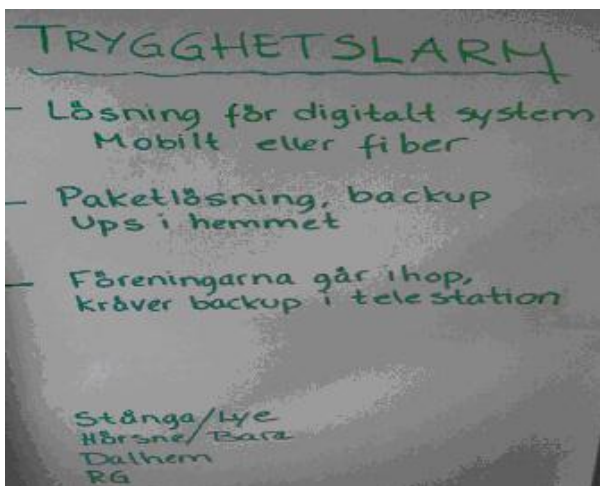 TRYGGHETSLARM
- Lösning för digitalt system
Mobilt eller fiber
- Paketlösning, backup
Ups i hemmet
- Föreningarna går ihop,
kräver backup i telestation
Stånga/Lye
Hörsne/Bara
Dalhem
RG